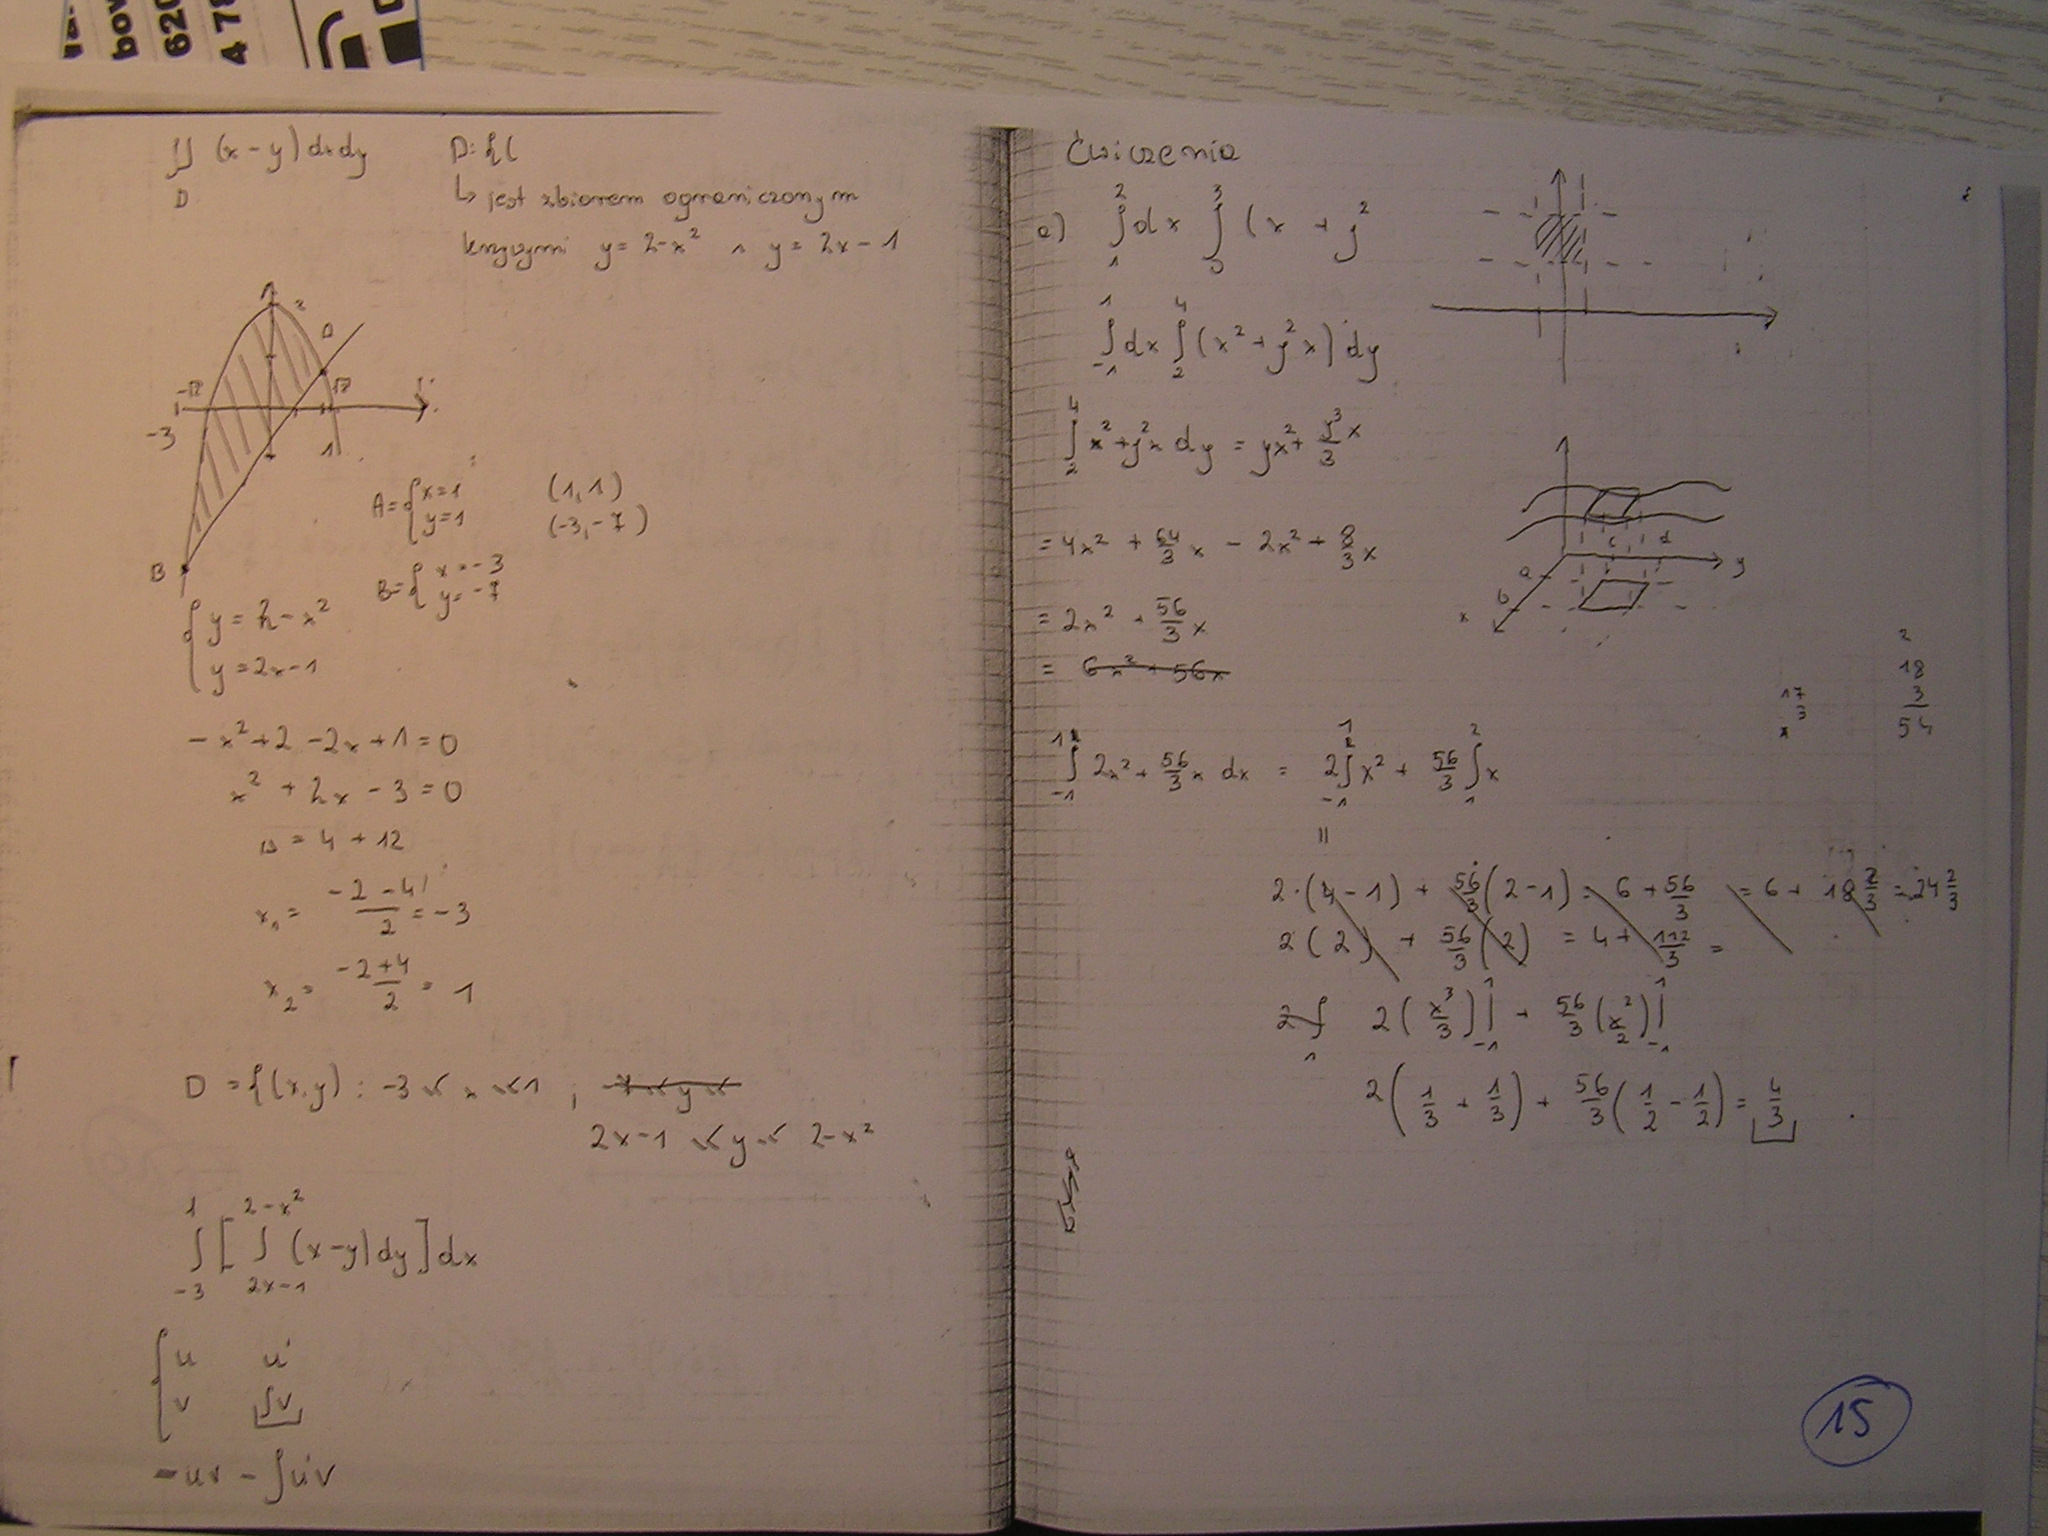 bow
620
478
∬ (x-y) dxdy D: {(
D
↳ jest zbiorem ograniczonym
krzywymi y = 2-x² ∧ y = 2x-1
2
A
-√2 √2
-3 1
B
A = { x=1 y=1 (1,1)
(-3,-7)
B = { x=-3 y=-7
{ y = 2-x²
y = 2x-1
-x²+2-2x+1=0
x²+2x-3=0
Δ = 4+12
x₁ = (-2-4)/2 = -3
x₂ = (-2+4)/2 = 1
D = {(x,y): -3 ≤ x ≤ 1 ;
2x-1 ≤ y ≤ 2-x²
∫_{-3}^{1} [ ∫_{2x-1}^{2-x²} (x-y) dy ] dx
{ u u'
v ∫v
-uv - ∫u'v
Ćwiczenia
a) ∫_{1}^{2} dx ∫_{0}^{3} (x + y²
∫_{-1}^{1} dx ∫_{2}^{4} (x²+y²x) dy
∫_{2}^{4} x²+y²x dy = yx² + y³/3 x
= 4x² + 64/3 x - 2x² + 8/3 x
= 2x² + 56/3 x
= 6x² + 56x
c d
a y
b
x
2
18
3
54
17
3
x
∫_{-1}^{1} 2x² + 56/3 x dx = 2∫_{-1}^{1} x² + 56/3 ∫_{1}^{2} x
=
2·(4-1) + 56/3 (2-1) = 6 + 56/3 = 6 + 18 2/3 = 24 2/3
2(2) + 56/3 (2) = 4 + 112/3 =
2∫ 2(x³/3)|_{-1}^{1} + 56/3 (x²/2)|_{-1}^{1}
2(1/3 + 1/3) + 56/3 (1/2 - 1/2) = 4/3
15